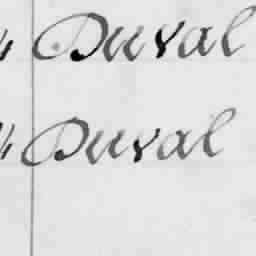 " Duval
" Duval